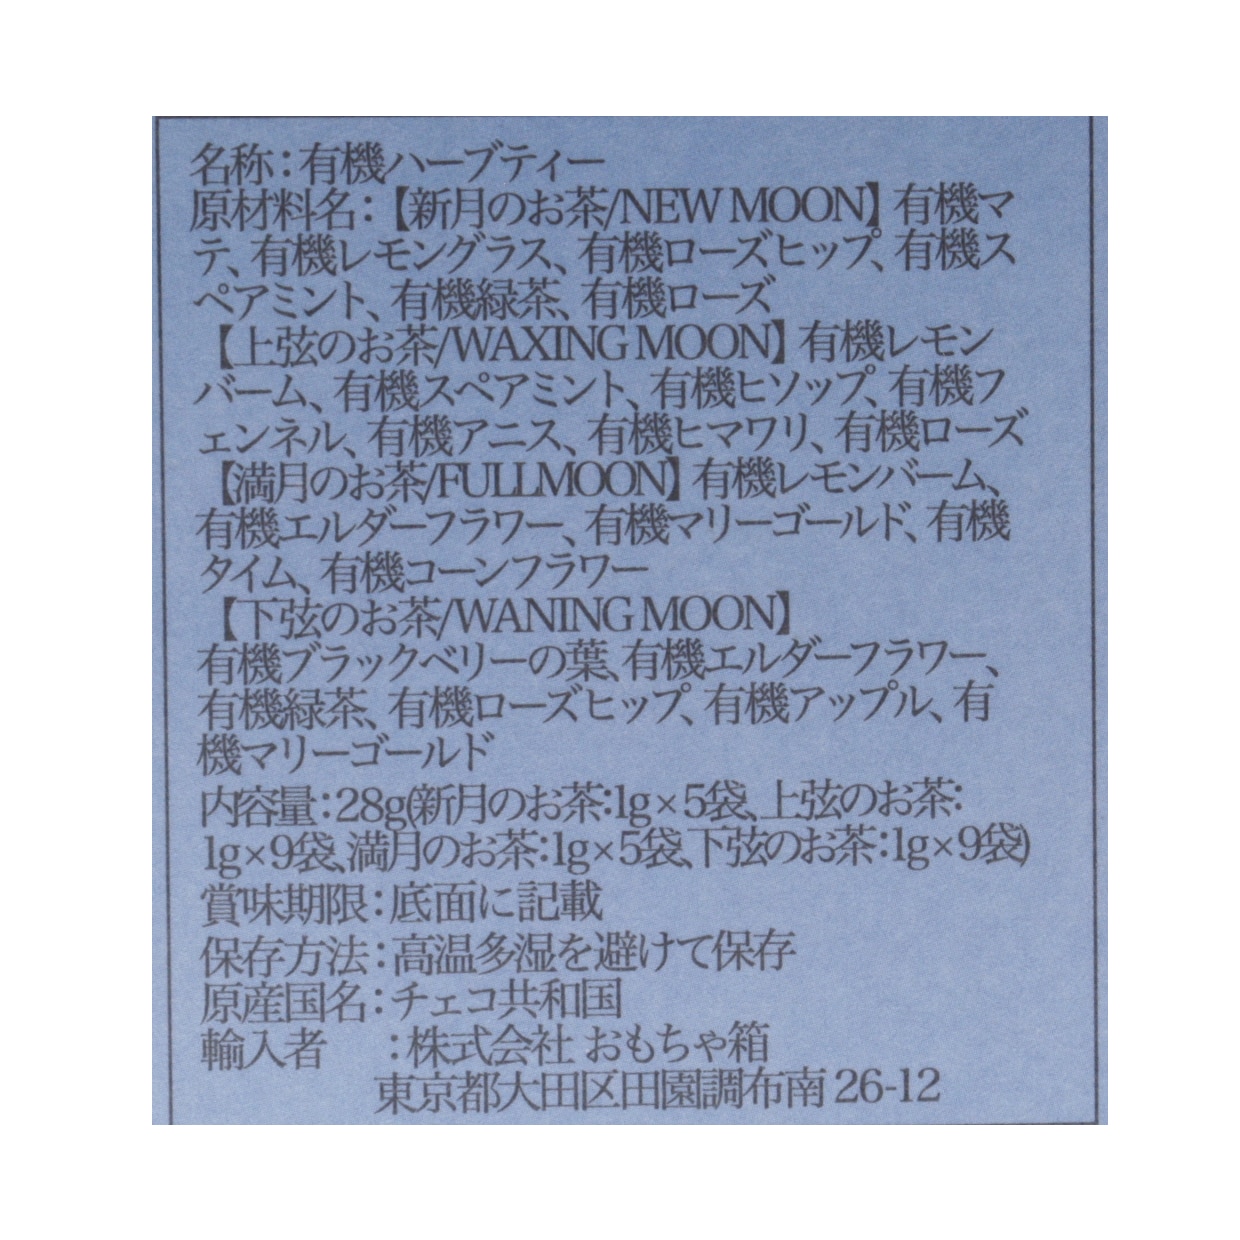 名称：有機ハーブティー
原材料名：【新月のお茶/NEW MOON】有機マ
テ、有機レモングラス、有機ローズヒップ、有機ス
ペアミント、有機緑茶、有機ローズ
【上弦のお茶/WAXING MOON】有機レモン
バーム、有機スペアミント、有機ヒソップ、有機フ
ェンネル、有機アニス、有機ヒマワリ、有機ローズ
【満月のお茶/FULLMOON】有機レモンバーム、
有機エルダーフラワー、有機マリーゴールド、有機
タイム、有機コーンフラワー
【下弦のお茶/WANING MOON】
有機ブラックベリーの葉、有機エルダーフラワー、
有機緑茶、有機ローズヒップ、有機アップル、有
機マリーゴールド
内容量：28g(新月のお茶：1g×5袋、上弦のお茶：
1g×9袋、満月のお茶：1g×5袋、下弦のお茶：1g×9袋)
賞味期限：底面に記載
保存方法：高温多湿を避けて保存
原産国名：チェコ共和国
輸入者　：株式会社 おもちゃ箱
東京都大田区田園調布南 26-12